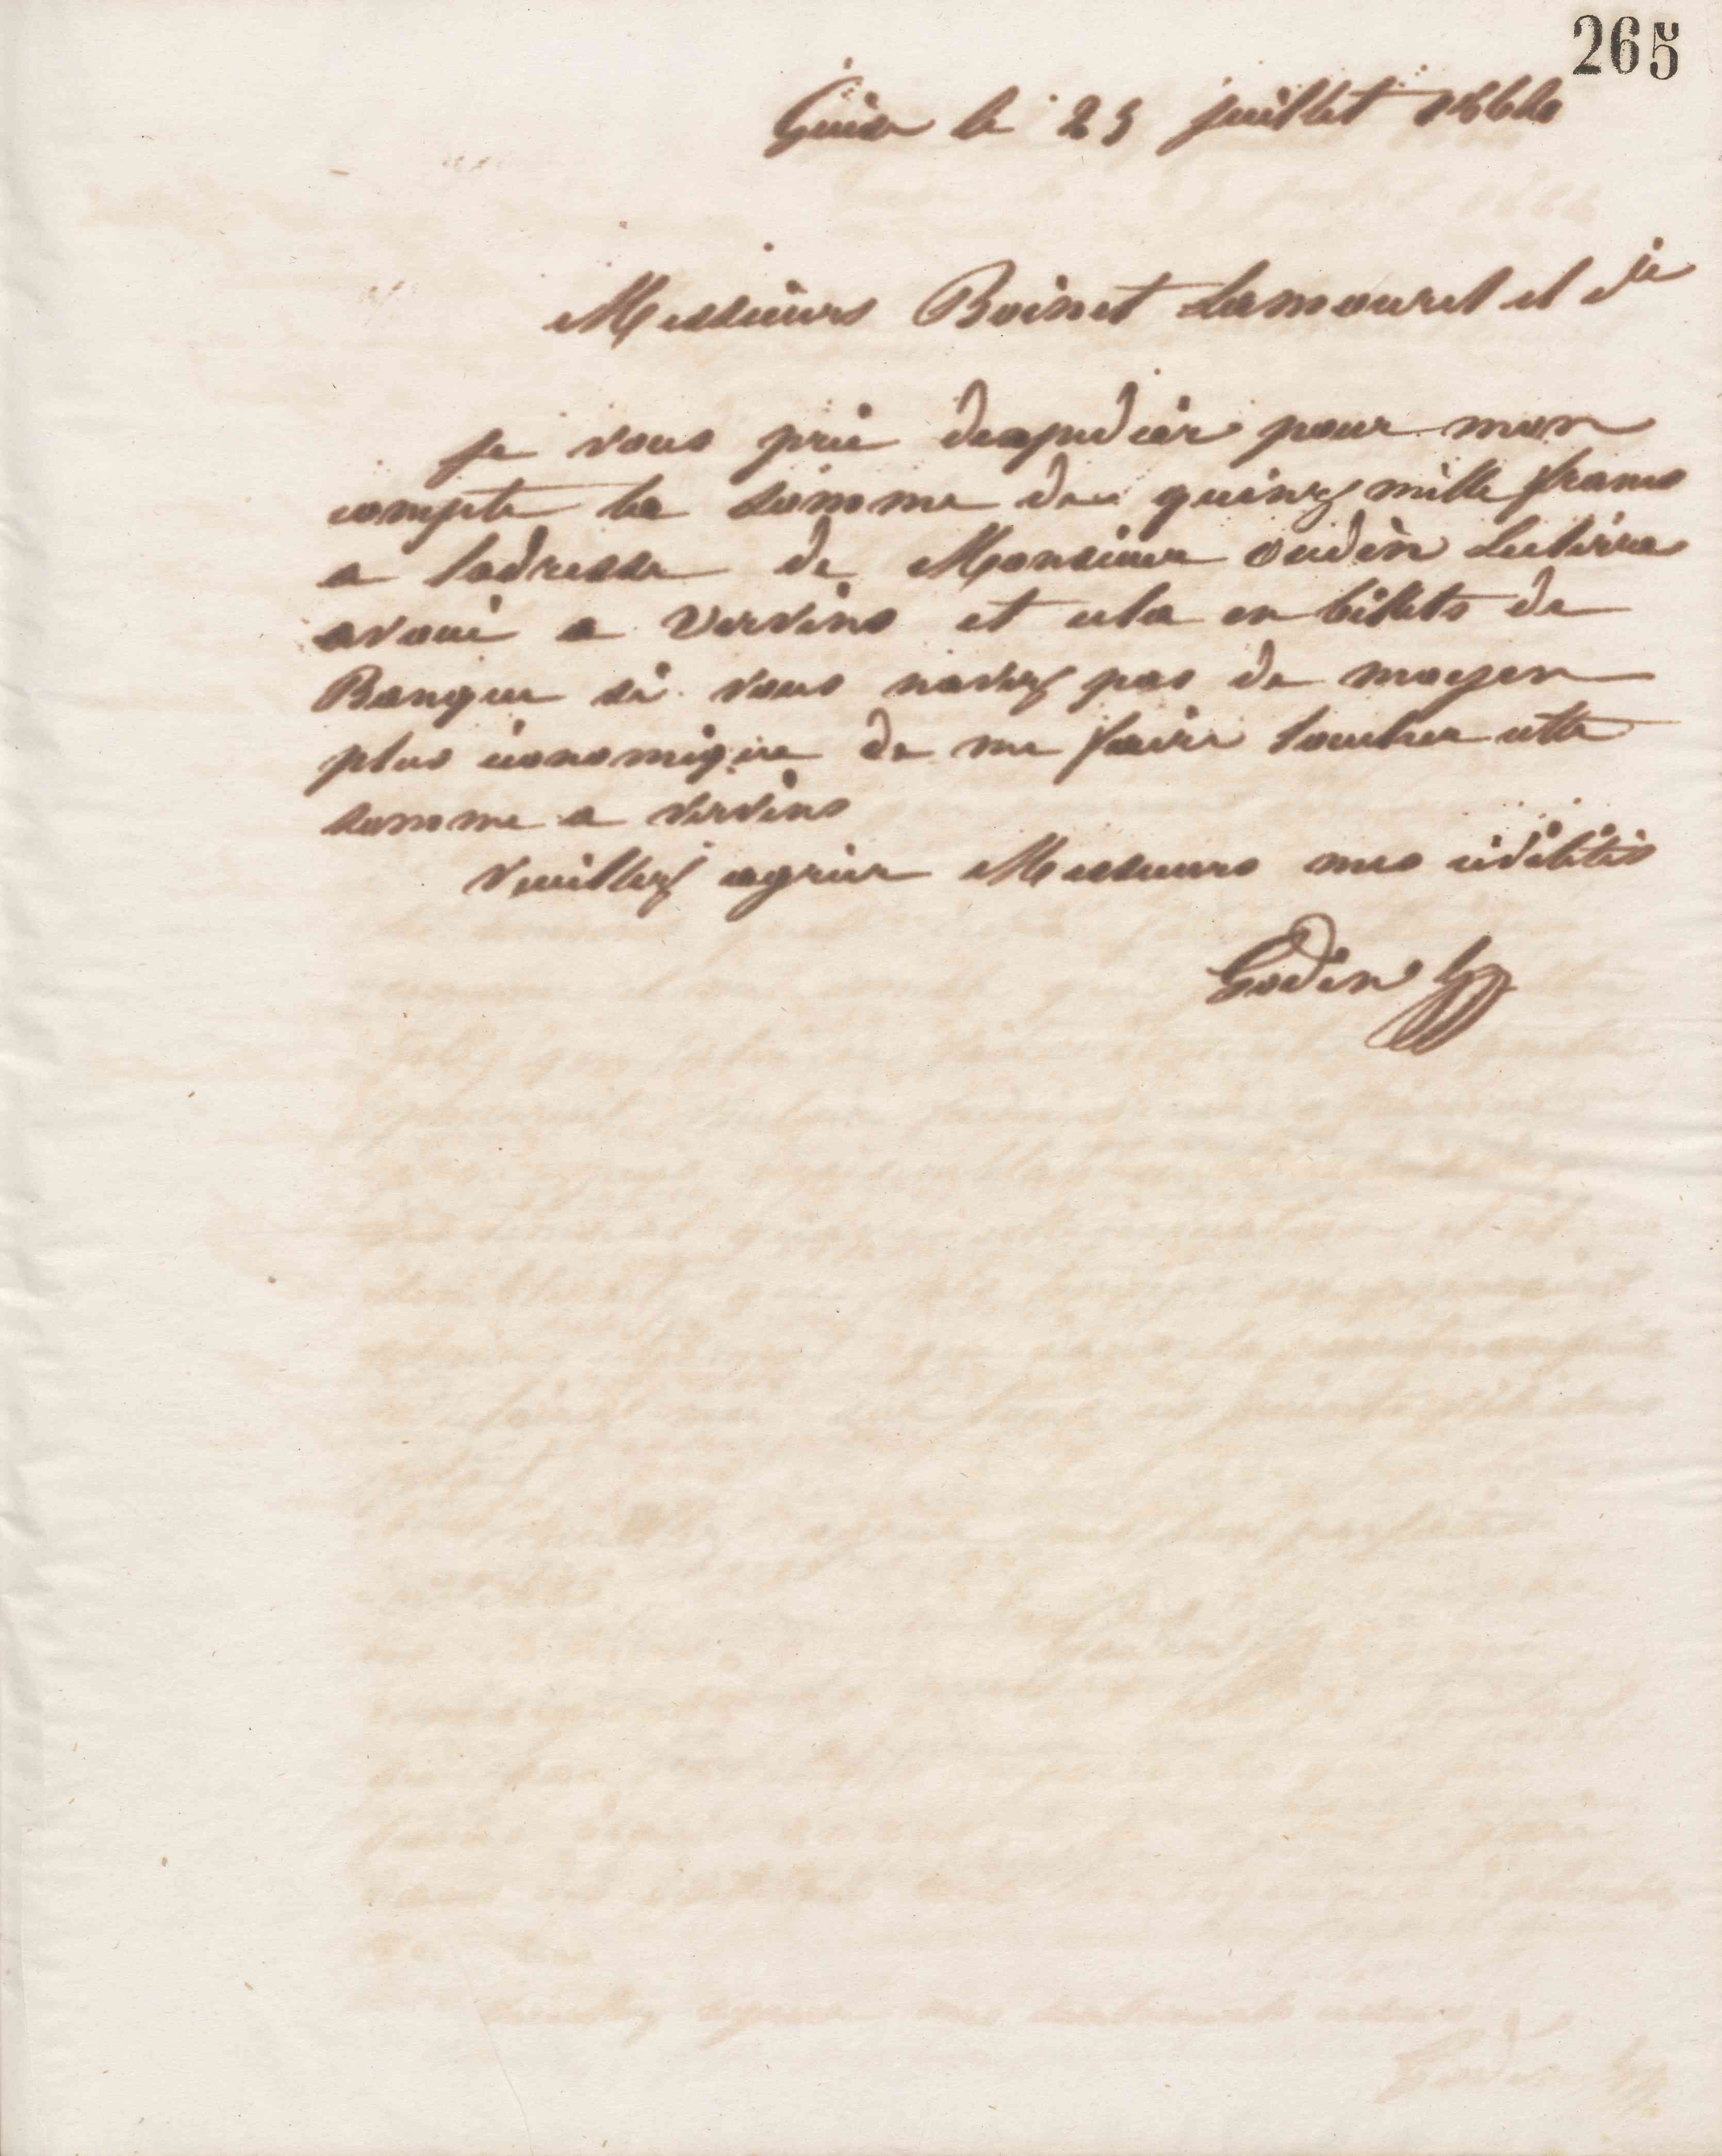 265
Guise le 23 juillet 1864
Messieurs Boinet Lamouret et Cie
je vous prie dexpédier pour mon
compte la somme de quinze mille francs
a ladresse de Monsieur oudin
avoué a Vervins et cela en billets de
Banque si vous navez pas de moyen
plus économique de me faire toucher cette
somme a vervins
veuillez agréer Messieurs mes civilités
Godin